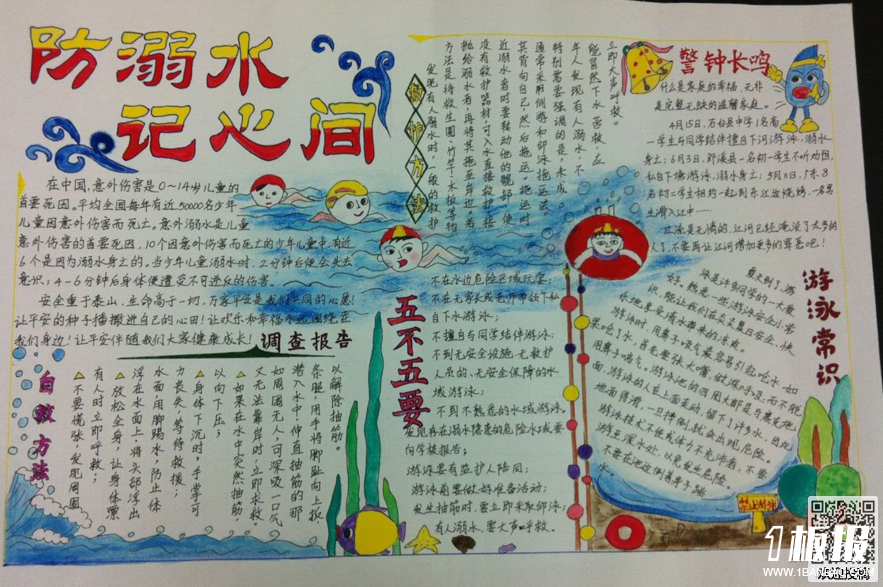 防溺水
记心间
在中国,意外伤害是0-14岁儿童的
首要死因。平均全国每年有近50000名少年
儿童因意外伤害而死亡。意外溺水是儿童
意外伤害的首要死因。10个因意外伤害而死亡的少年儿童中,有近
6个是因为溺水身亡的。当少年儿童溺水时,2分钟后便会失去
意识;4-6分钟后身体便遭受不可逆反的伤害。
安全重于泰山,生命高于一切,万家平安是我们共同的心愿!
让平安的种子播撒进自己的心田!让欢乐和幸福永远围绕在
我们身边!让平安伴随我们大家健康成长!
调查报告
救护方法
发现有人溺水时,一般的救护
方法是将救生圈、竹竿、木板等物
抛给溺水者,再将其拖至岸边;若
没有救护器材,可入水直接救护。接
近溺水者时要转动他的髋部,使
其背向自己,然后拖运。拖运时
通常采用侧游和仰泳拖运法
特别需要强调的是:未成
年人发现有人溺水,不
能冒然下水营救,应
立即大声呼救。
警钟长鸣
什么是家庭的幸福,无非
是完整无缺的温馨家庭。
4月15日,石台县中学1名高
一学生与同学结伴擅自下河游泳,溺水
身亡;6月3日,郎溪县一名初一学生不听劝阻,
私自下塘游泳,溺水身亡;5月11日,
名初二学生相约一起到东江边烧烤,一名男
生滑入江中……
江流是无情的,江河已经淹没了太多的
人了,不要再让江河增加更多的罪孽吧!
五不五要
不在水边危险区域玩耍;
不在无家长或老师带领下私
自下水游泳;
不擅自与同学结伴游泳;
不到无安全设施、无救护
人员的、无安全保障的水
域游泳;
不到不熟悉的水域游泳。
发现存在溺水隐患的危险水域要
向学校报告;
游泳要有监护人陪同;
游泳前要做好准备活动;
发生抽筋时,要立即采取仰泳;
有人溺水,要大声呼救。
游泳常识
夏天到了,游
泳是许多同学的一大爱
好。熟悉一些游泳安全小常
识,能让我们在炎炎夏日安全、快
乐地享受清水带来的清爽。
游泳时,用鼻子吸气最容易引起呛水。如
果呛了水,首先要张大嘴,做深呼吸;而不能
用鼻子喘气。游泳池的四周大都是马赛克
面,游泳的人在上面走动,留下了许多水,因此
地面很滑,一旦摔倒,就会出现危险。
游泳技术不佳或体力不充沛者,不要
游至深水处,以免发生危险。
不要在池边倒着身子跳
水。
禁止游泳
自救方法
不要慌张,发现周围
有人时立即呼救;
放松全身,让身体漂
浮在水面上,将头部浮出
水面,用脚踢水,防止体
力丧失,等待救援;
身体下沉时,手掌可
以向下压;
如果在水中突然抽筋
又无法靠岸时,立即求救
如周围无人,可深吸一口气
潜入水中,伸直抽筋的那
条腿,用手将脚趾向上扳
以解除抽筋。
1板报
WWW.1BANBAO.COM
欢迎来稿